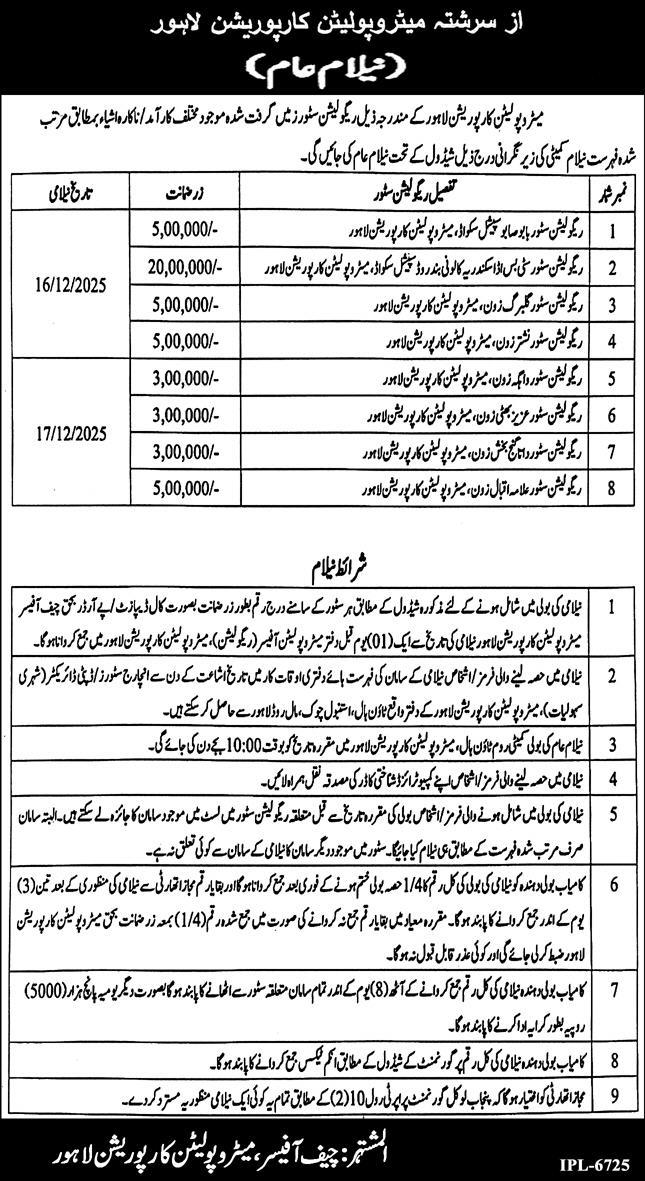 از سرشتہ میٹروپولیٹن کارپوریشن لاہور
(نیلام عام)
میٹروپولیٹن کارپوریشن لاہور کے مندرجہ ذیل ریگولیشن سٹورز میں گرفت شدہ موجود مختلف کارآمد/ناکارہ اشیاء بمطابق مرتب
شدہ فہرست نیلام کمیٹی کی زیر نگرانی درج ذیل شیڈول کے تحت نیلام عام کی جائیں گی۔
نمبر شمار تفصیل ریگولیشن سٹور زر ضمانت تاریخ نیلامی
1 ریگولیشن سٹور بابو صابو سپیشل سکواڈ، میٹروپولیٹن کارپوریشن لاہور 5,00,000/-
2 ریگولیشن سٹور سٹی بس اڈا سکندریہ کالونی بند روڈ سپیشل سکواڈ، میٹروپولیٹن کارپوریشن لاہور 20,00,000/- 16/12/2025
3 ریگولیشن سٹور گلبرگ زون، میٹروپولیٹن کارپوریشن لاہور 5,00,000/-
4 ریگولیشن سٹور نشتر زون، میٹروپولیٹن کارپوریشن لاہور 5,00,000/-
5 ریگولیشن سٹور واہگہ زون، میٹروپولیٹن کارپوریشن لاہور 3,00,000/-
6 ریگولیشن سٹور عزیز بھٹی زون، میٹروپولیٹن کارپوریشن لاہور 3,00,000/- 17/12/2025
7 ریگولیشن سٹور داتا گنج بخش زون، میٹروپولیٹن کارپوریشن لاہور 3,00,000/-
8 ریگولیشن سٹور علامہ اقبال زون، میٹروپولیٹن کارپوریشن لاہور 5,00,000/-
شرائط نیلام
1 نیلامی کی بولی میں شامل ہونے کے لئے مذکورہ شیڈول کے مطابق ہر سٹور کے سامنے درج رقم بطور زر ضمانت بصورت کال ڈیپازٹ/پے آرڈر بحق چیف آفیسر
میٹروپولیٹن کارپوریشن لاہور نیلامی کی تاریخ سے ایک (01) یوم قبل دفتر میٹروپولیٹن آفیسر (ریگولیشن)، میٹروپولیٹن کارپوریشن لاہور میں جمع کروانا ہوگا۔
2 نیلامی میں حصہ لینے والی فرمز/اشخاص نیلامی کے سامان کی فہرست ہائے دفتری اوقات کار میں تاریخ اشاعت کے دن سے انچارج سٹورز/ڈپٹی ڈائریکٹر (شہری
سہولیات)، میٹروپولیٹن کارپوریشن لاہور کے دفتر واقع ٹاؤن ہال، استنبول چوک، مال روڈ لاہور سے حاصل کر سکتے ہیں۔
3 نیلام عام کی بولی کمیٹی روم ٹاؤن ہال، میٹروپولیٹن کارپوریشن لاہور میں مقررہ تاریخ کو بوقت 10:00 بجے دن کی جائے گی۔
4 نیلامی میں حصہ لینے والی فرمز/اشخاص اپنے کمپیوٹرائزڈ شناختی کارڈ کی مصدقہ نقل ہمراہ لائیں۔
5 نیلامی کی بولی میں شامل ہونے والی فرمز/اشخاص بولی کی مقررہ تاریخ سے قبل متعلقہ ریگولیشن سٹور میں لسٹ میں موجود سامان کا جائزہ لے سکتے ہیں۔ البتہ سامان
صرف مرتب شدہ فہرست کے مطابق ہی نیلام کیا جائیگا۔ سٹور میں موجود دیگر سامان کا نیلامی کے سامان سے کوئی تعلق نہ ہے۔
6 کامیاب بولی دہندہ کو نیلامی کی بولی کی کل رقم کا 1/4 حصہ بولی ختم ہونے کے فوری بعد جمع کروانا ہوگا اور بقایا رقم مجاز اتھارٹی سے نیلامی کی منظوری کے بعد تین (3)
یوم کے اندر جمع کروانے کا پابند ہوگا۔ مقررہ معیاد میں بقایا رقم جمع نہ کروانے کی صورت میں جمع شدہ رقم (1/4) بمعہ زر ضمانت بحق میٹروپولیٹن کارپوریشن
لاہور ضبط کر لی جائے گی اور کوئی عذر قابل قبول نہ ہوگا۔
7 کامیاب بولی دہندہ نیلامی کی کل رقم جمع کروانے کے آٹھ (8) یوم کے اندر تمام سامان متعلقہ سٹور سے اٹھانے کا پابند ہوگا بصورت دیگر یومیہ پانچ ہزار (5000)
روپیہ بطور کرایہ ادا کرنے کا پابند ہوگا۔
8 کامیاب بولی دہندہ نیلامی کی کل رقم پر گورنمنٹ کے شیڈول کے مطابق انکم ٹیکس جمع کروانے کا پابند ہوگا۔
9 مجاز اتھارٹی کو اختیار ہوگا کہ پنجاب لوکل گورنمنٹ پراپرٹی رول 10(2) کے مطابق تمام یہ کوئی ایک نیلامی منظور یہ مسترد کر دے۔
المشتہر: چیف آفیسر، میٹروپولیٹن کارپوریشن لاہور
IPL-6725